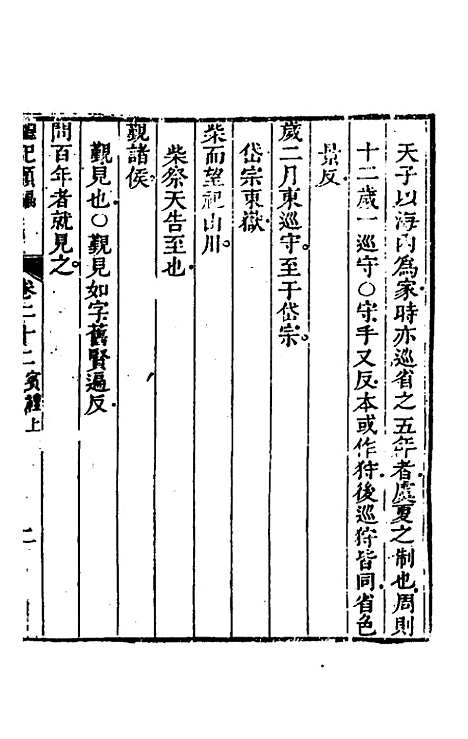 天子以海內爲家時亦巡省之五年者虞夏之制也周則
十二歲一巡守○守手又反本或作狩後巡狩皆同省色
景反
歲二月東巡守至于岱宗
岱宗東嶽
柴而望祀山川
柴祭天告至也
覲諸侯
覲見也○覲見如字舊賢遍反
問百年者就見之
禮記類編
卷二十二 賓禮上
二